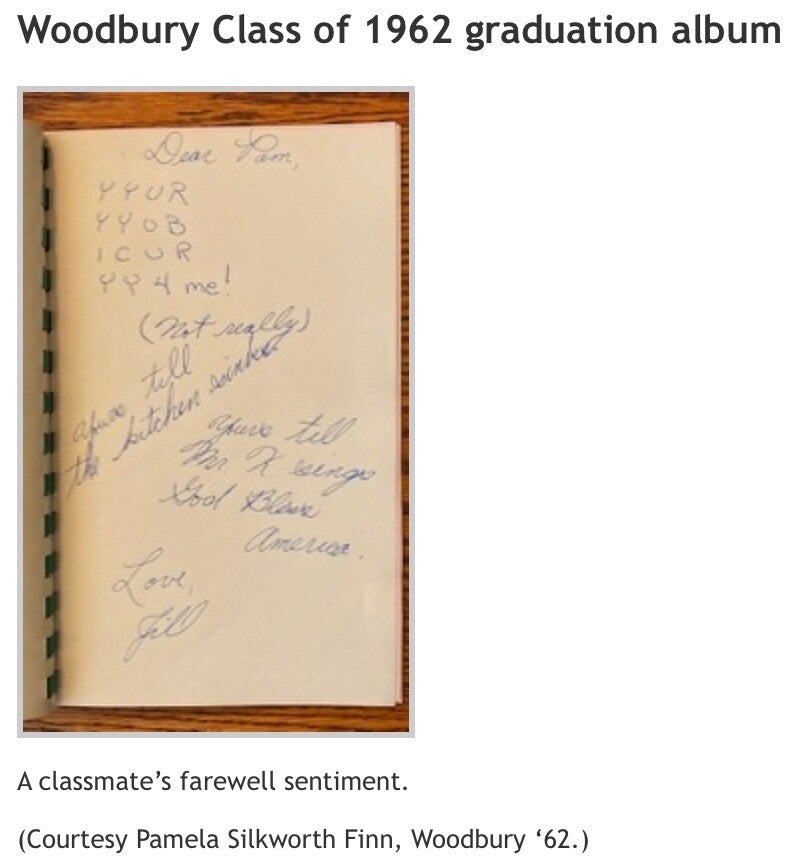 Woodbury Class of 1962 graduation album
Dear Pam,
YYUR
YYUB
ICUR
YY4 me!
(Not really)
Yours till
the kitchen sinks
Yours till
Mr. K sings
God Bless
America.
Love,
Jill
A classmate’s farewell sentiment.
(Courtesy Pamela Silkworth Finn, Woodbury ‘62.)